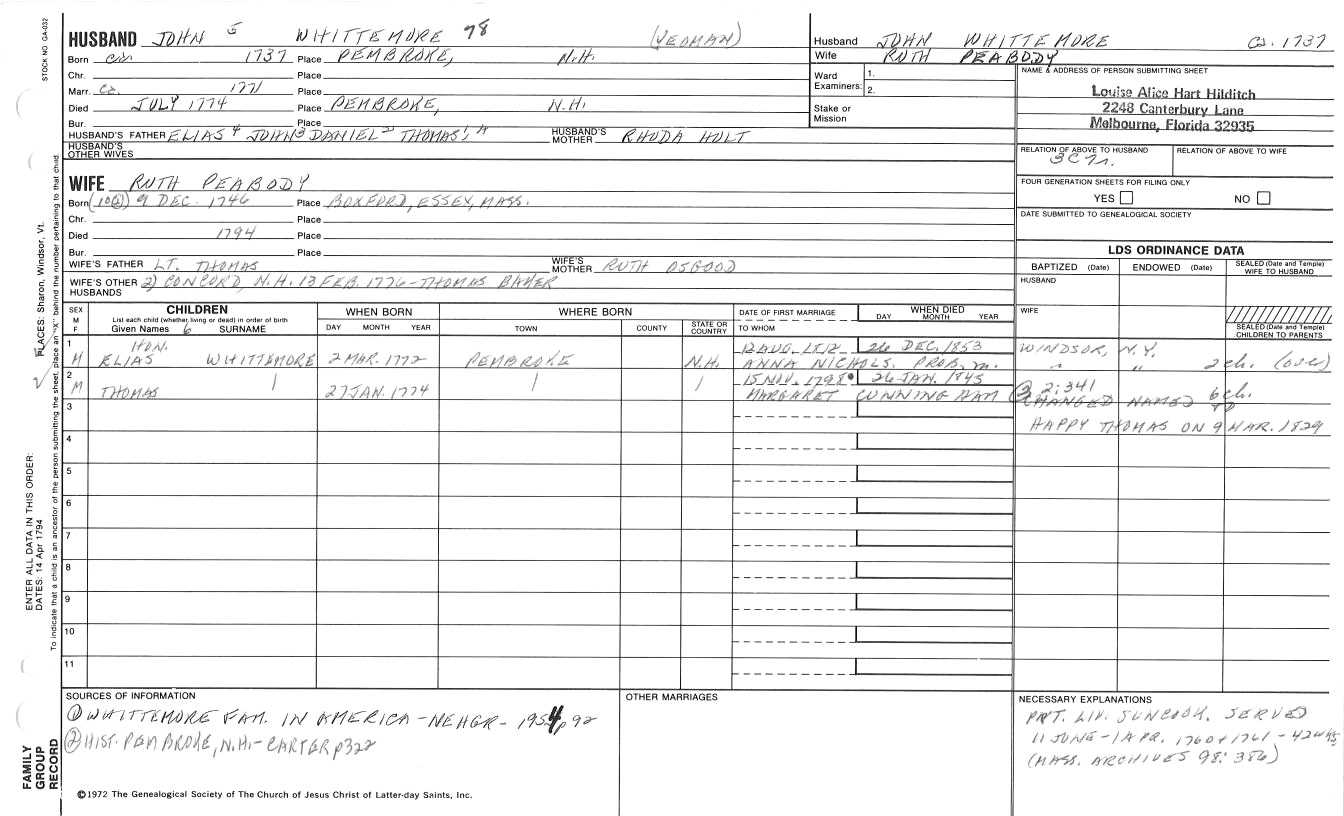 STOCK NO. GA-032
HUSBAND JOHN 5 WHITTEMORE 78 (YEOMAN)
Born ca. 1737 Place PEMBROKE, N.H.
Chr. Place
Marr. Ca. 1771 Place
Died JULY 1774 Place PEMBROKE, N.H.
Bur. Place
HUSBAND'S FATHER ELIAS 4 JOHN 3 DANIEL 2 THOMAS 1, A HUSBAND'S MOTHER RHODA HOLT
HUSBAND'S OTHER WIVES
WIFE RUTH PEABODY
Born 9 DEC. 1746 Place BOXFORD, ESSEX, MASS.
Chr. Place
Died 1794 Place
Bur. Place
WIFE'S FATHER LT. THOMAS WIFE'S MOTHER RUTH OSGOOD
WIFE'S OTHER HUSBANDS 2) CONCORD, N.H. 13 FEB. 1776 - THOMAS BAKER
Husband JOHN WHITTEMORE Ca. 1737
Wife RUTH PEABODY
Ward Examiners: 1.
2.
Stake or Mission
NAME & ADDRESS OF PERSON SUBMITTING SHEET
Louise Alice Hart Hilditch
2248 Canterbury Lane
Melbourne, Florida 32935
RELATION OF ABOVE TO HUSBAND RELATION OF ABOVE TO WIFE
3C7r.
FOUR GENERATION SHEETS FOR FILING ONLY
YES NO
DATE SUBMITTED TO GENEALOGICAL SOCIETY
LDS ORDINANCE DATA
BAPTIZED (Date) ENDOWED (Date) SEALED (Date and Temple) WIFE TO HUSBAND
HUSBAND
WIFE
SEALED (Date and Temple) CHILDREN TO PARENTS
SEX M F
CHILDREN
List each child (whether living or dead) in order of birth
Given Names 6 SURNAME
WHEN BORN
DAY MONTH YEAR
WHERE BORN
TOWN COUNTY STATE OR COUNTRY
DATE OF FIRST MARRIAGE
TO WHOM
WHEN DIED
DAY MONTH YEAR
1 HON. 12 AUG. 1812 26 DEC. 1853 WINDSOR, N.Y.
M ELIAS WHITTEMORE 2 MAR. 1772 PEMBROKE N.H. ANNA NICHOLS. PROB. m. " " 2ch. (over)
2 15 NOV. 1798 26 JAN. 1845 2:341
M THOMAS 27 JAN. 1774 MARGARET CUNNINGHAM 6ch.
CHANGED NAMED TO
3
HAPPY THOMAS ON 9 MAR. 1829
4
5
6
7
8
9
10
11
SOURCES OF INFORMATION
① WHITTEMORE FAM. IN AMERICA - NEHGR - 1954 p 92
② HIST. PEMBROKE, N.H. - CARTER p322
OTHER MARRIAGES
NECESSARY EXPLANATIONS
PVT. LIV. SUNCOOK. SERVED
11 JUNE - 1 APR. 1760 + 1761 - 42 wks
(MASS. ARCHIVES 98: 386)
©1972 The Genealogical Society of The Church of Jesus Christ of Latter-day Saints, Inc.
FAMILY
GROUP
RECORD
ENTER ALL DATA IN THIS ORDER:
DATES: 14 Apr 1794
PLACES: Sharon, Windsor, Vt.
To indicate that a child is an ancestor of the person submitting the sheet, place an "X" behind the number pertaining to that child